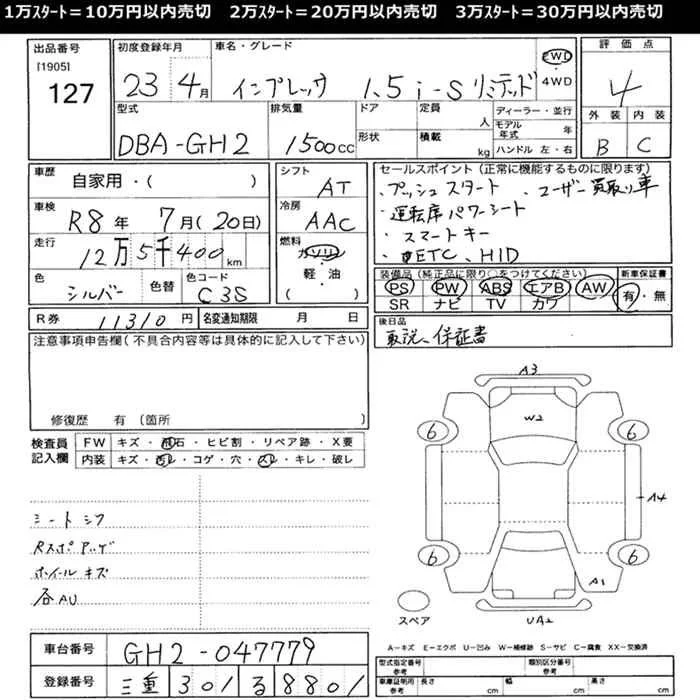 1万ｽﾀｰﾄ＝10万円以内売切　2万ｽﾀｰﾄ＝20万円以内売切　3万ｽﾀｰﾄ＝30万円以内売切
出品番号
[1905]
127
初度登録年月
23 4月
車名・グレード
インプレッサ 1.5 i-S リミテッド
FWD
・
4WD
評価点
4
外装 内装
B C
型式
DBA-GH2
排気量
1500cc
ドア
形状
定員
人
積載
kg
ディーラー・並行
モデル年式 年
ハンドル 左・右
車歴
自家用・( )
車検
R8年 7月(20日)
走行
12万5千400km
色
シルバー
色替
色コード
C3S
シフト
AT
冷房
AAC
燃料
ガソリン
・
軽・油
( )
セールスポイント(正常に機能するものに限ります)
・プッシュスタート ・ユーザー買取り車
・運転席パワーシート
・スマートキー
・ETC、HID
装備品(純正品に限り○をつけてください)
PS PW ABS エアB AW
SR ナビ TV カワ
新車保証書
有・無
R券 11310円
名変通知期限 月 日
後日品
取説、保証書
注意事項申告欄(不具合内容等は具体的に記入して下さい)
修復歴 有 〔箇所 〕
検査員
記入欄
FW キズ・飛石・ヒビ割・リペア跡・X要
内装 キズ・汚レ・コゲ・穴・スレ・キレ・破レ
シートシワ
ホイールキズ
各AU
A3
W2
6
6
A4
6
6
A1
UA2
スペア
A－キズ E－エクボ U－凹み W－補修跡 S－サビ C－腐食 XX－交換済
車台番号
GH2-047779
登録番号
三重 301 る 8801
型式指定番号
参考
類別区分番号
参考
車庫証明用
参考
長さ cm
幅 cm
高さ cm